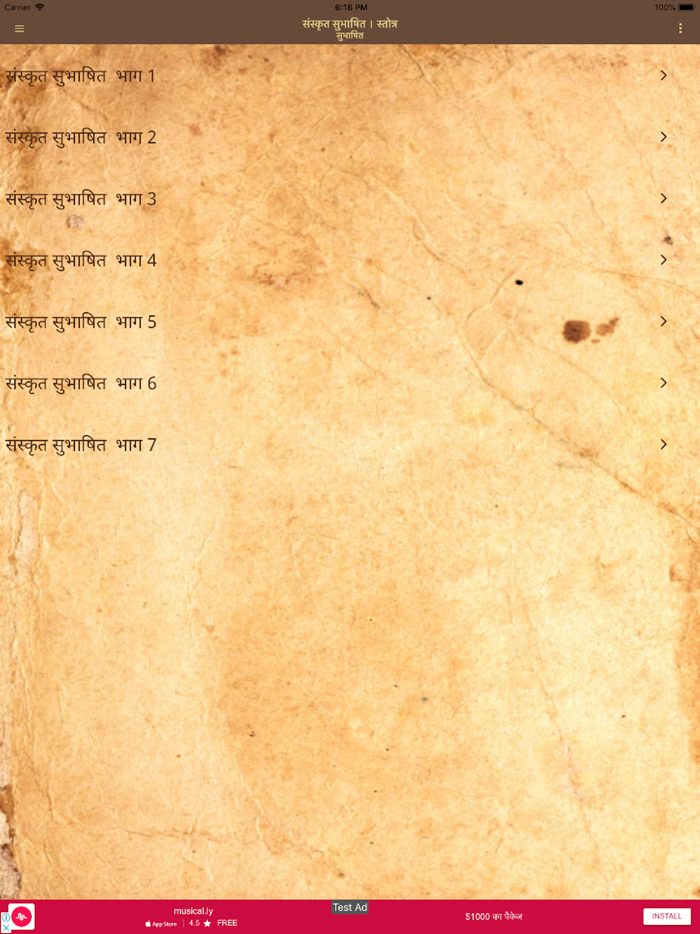 Carrier 6:18 PM 100%
संस्कृत सुभाषित । स्तोत्र
सुभाषित
संस्कृत सुभाषित भाग 1
संस्कृत सुभाषित भाग 2
संस्कृत सुभाषित भाग 3
संस्कृत सुभाषित भाग 4
संस्कृत सुभाषित भाग 5
संस्कृत सुभाषित भाग 6
संस्कृत सुभाषित भाग 7
Test Ad
musical.ly
App Store | 4.5 ★ FREE
$1000 का पैकेज
INSTALL